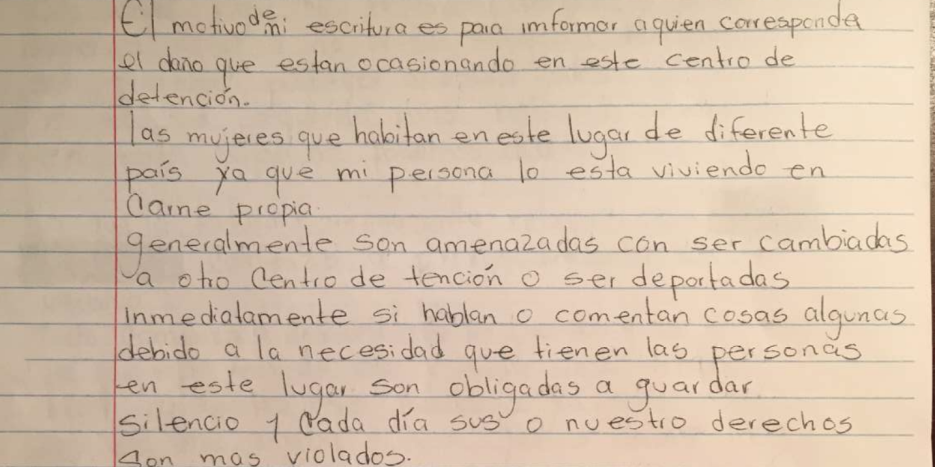 El motivo de mi escritura es para imformar a quien corresponda
el daño que estan ocasionando en este centro de
detención.
las mujeres que habitan en este lugar de diferente
país ya que mi persona lo esta viviendo en
Carne propia.
generalmente son amenazadas con ser cambiadas
a otro Centro de tención o ser deportadas
inmediatamente si hablan o comentan cosas algunas
debido a la necesidad que tienen las personas
en este lugar son obligadas a guardar
silencio y Cada día sus o nuestro derechos
son mas violados.